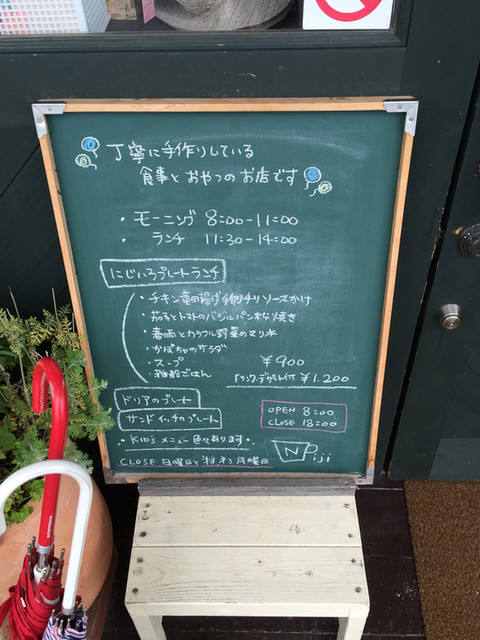 丁寧に手作りしている
食事と おやつの お店です
・モーニング 8:00-11:00
・ランチ 11:30-14:00
にじいろプレートランチ
・チキン竜田揚げ手作りチリソースかけ
・茄子とトマトのバジルパン粉焼き
・春雨とカラフル野菜のマリネ
・かぼちゃのサラダ
・スープ
・雑穀ごはん
¥900
ドリンク・デザート付 ¥1.200
ドリアのプレート
サンドイッチのプレート
OPEN 8:00
CLOSE 18:00
・KID'S メニュー 色々あります・
N Piji
CLOSE 日曜日と 月曜日